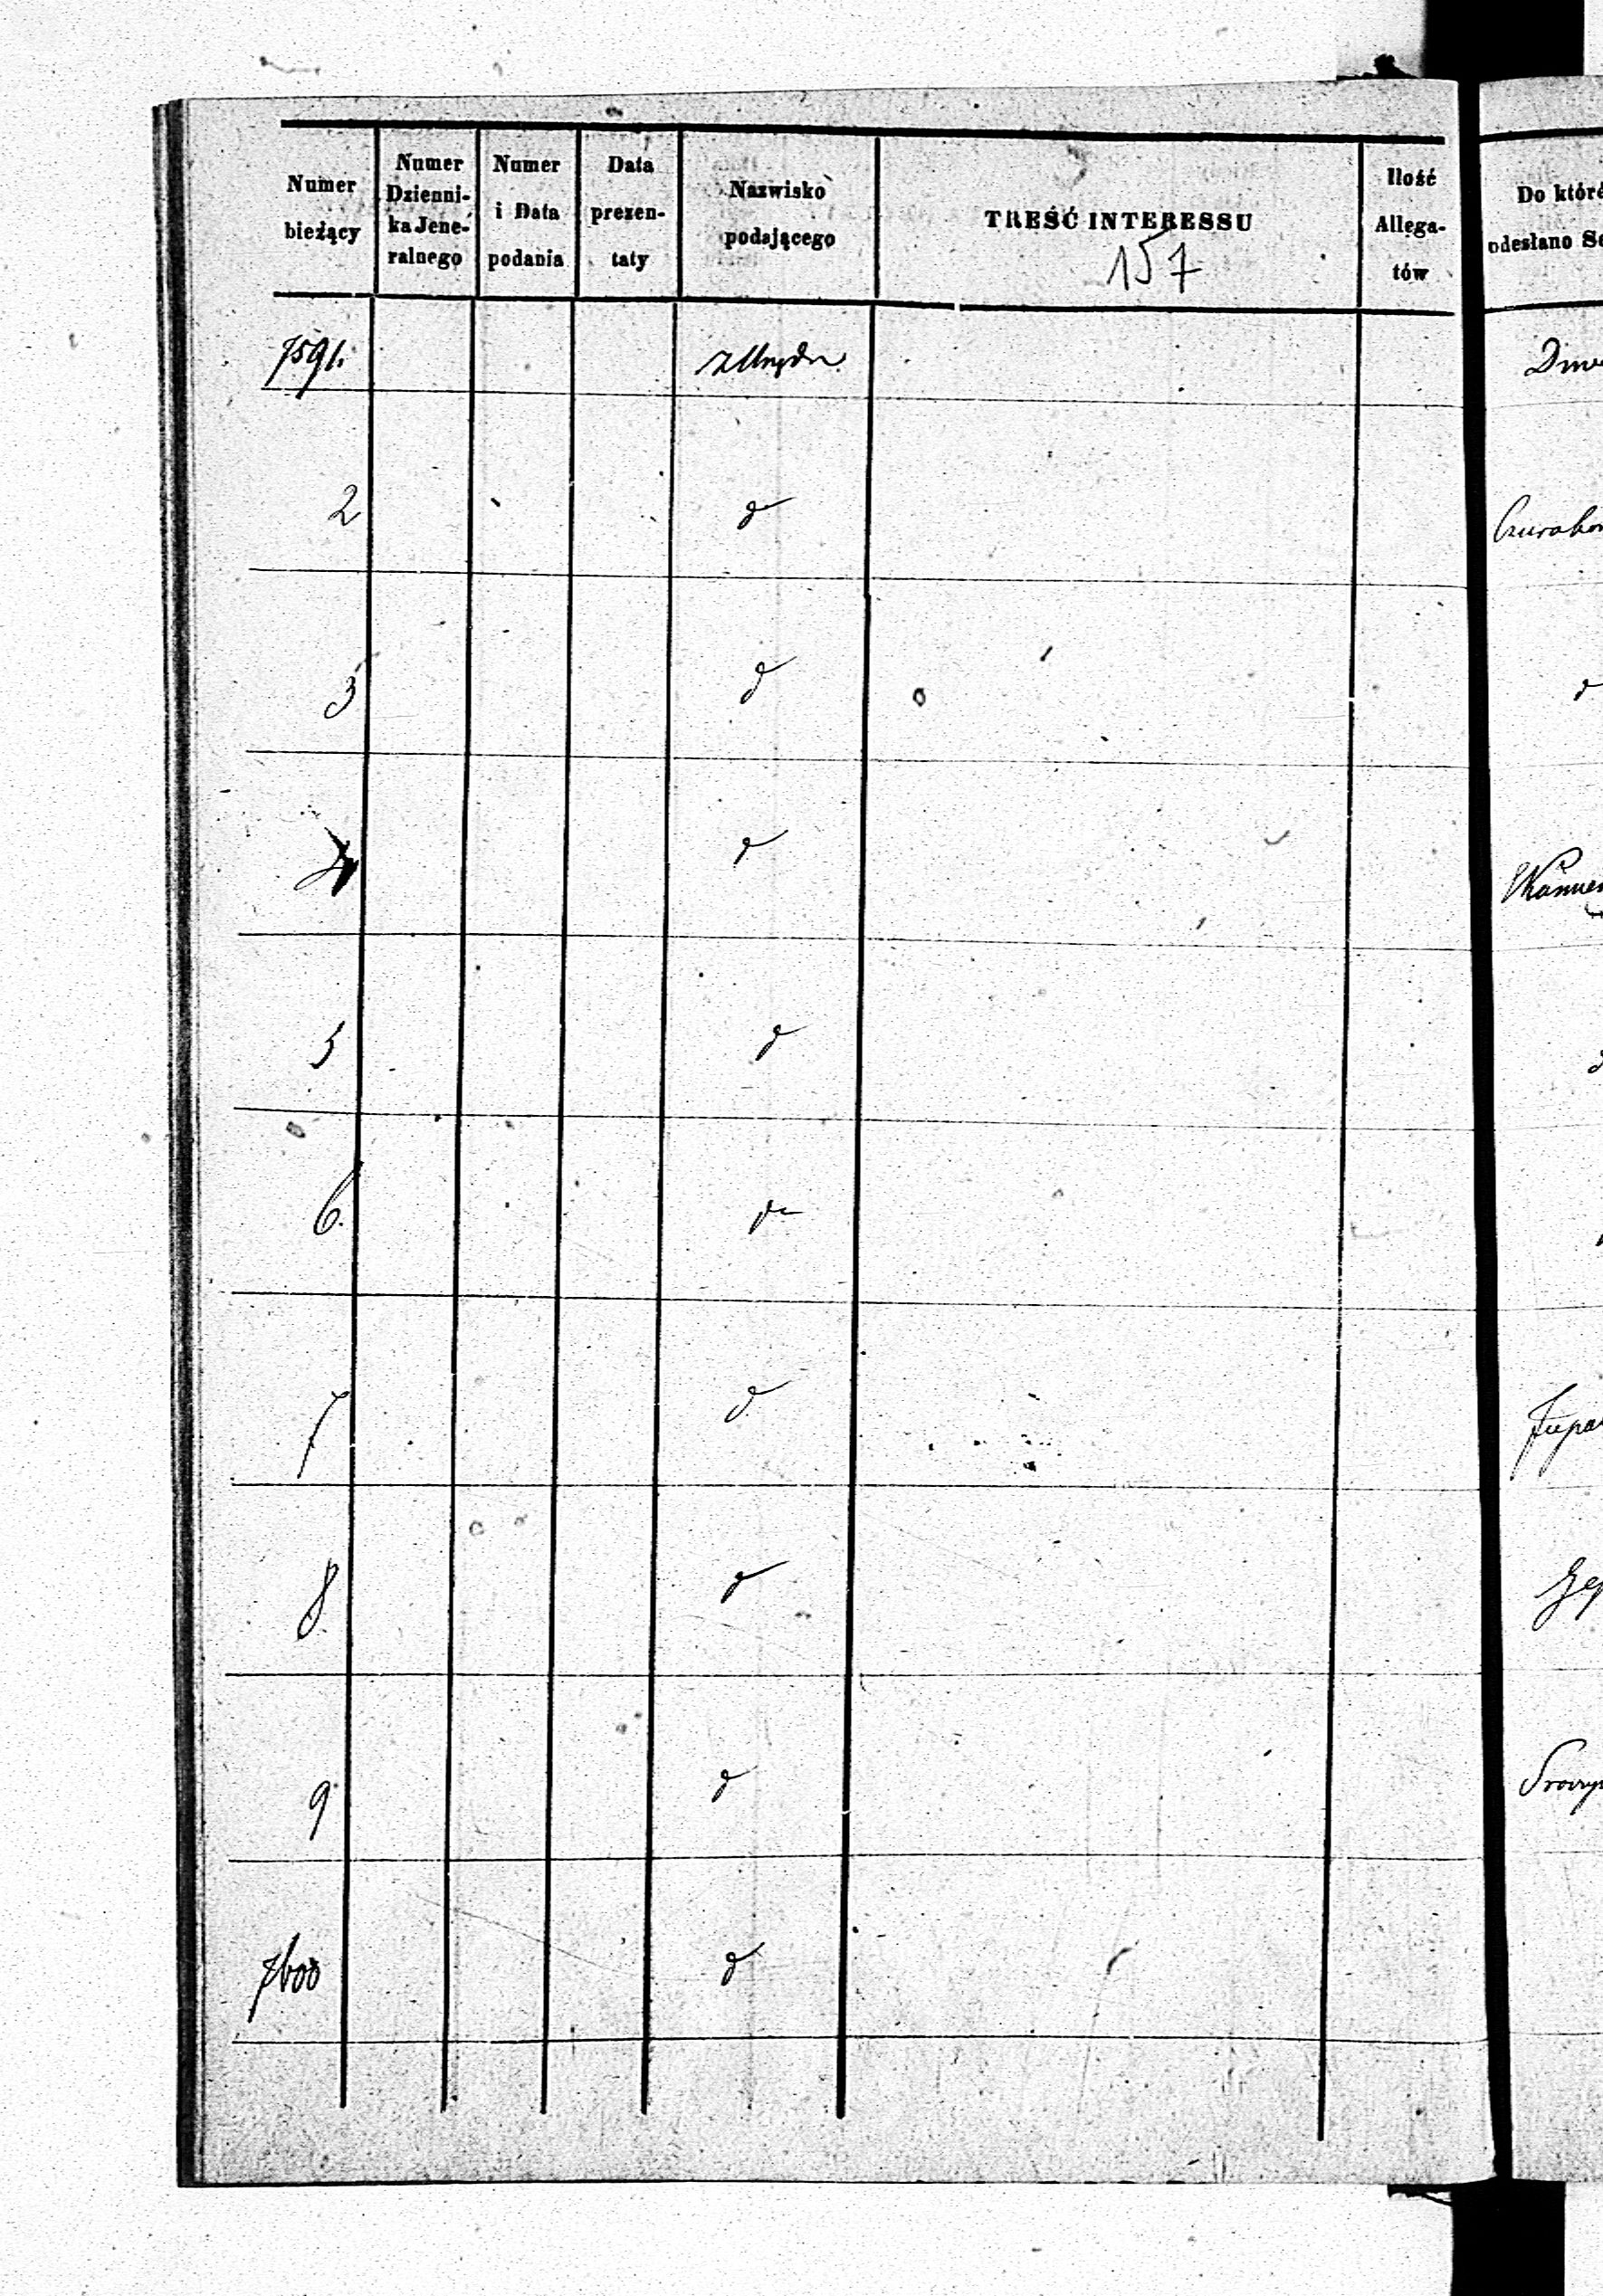 Numer bieżący
Numer Dzienni-ka Jene-ralnego
Numer i Data podania
Data prezen-taty
Nazwisko podającego
TREŚĆ INTERESSU
157
Ilość Allega-tów
Do któré
odesłano Se
7591. z Urzędu
2 d
3 d
4 d
5 d
6. d
7 d
8 d
9 d
7600 d